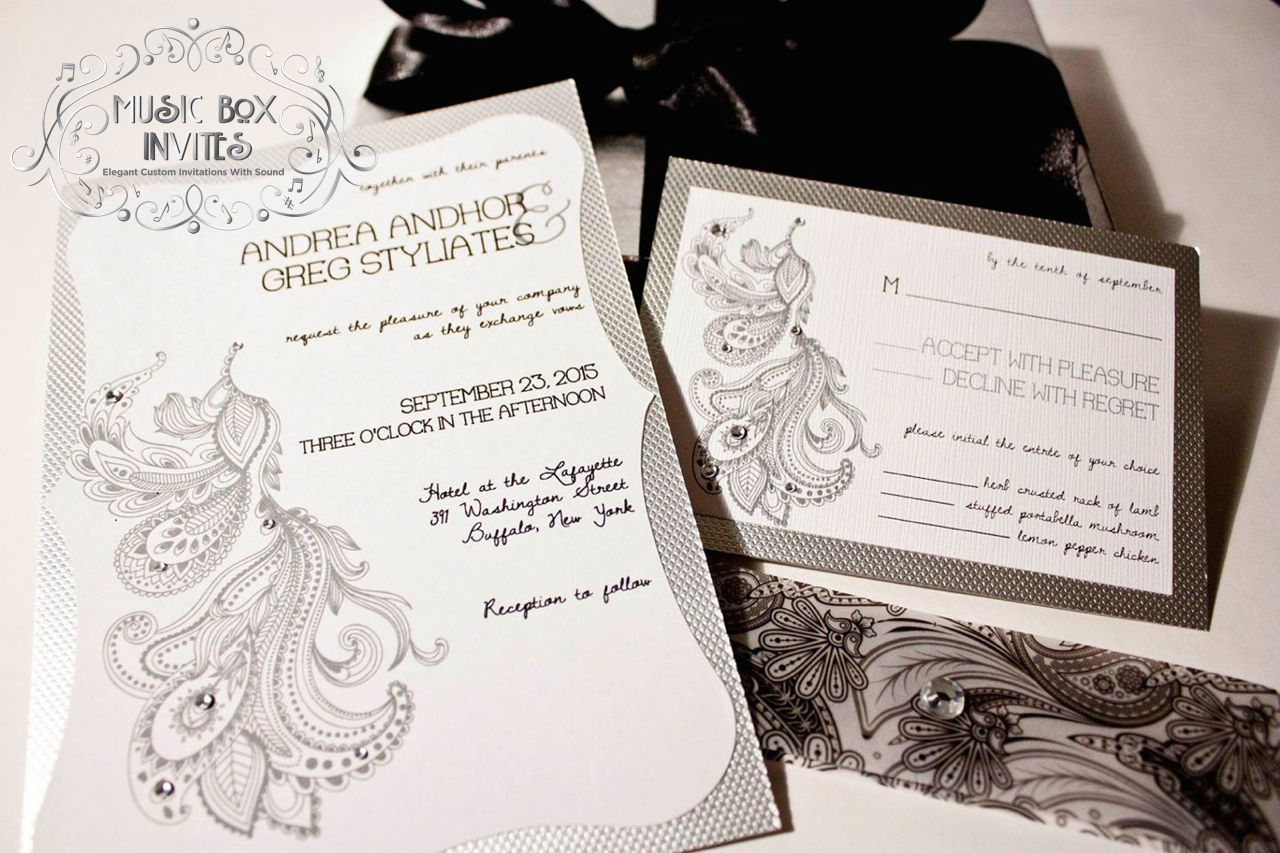 MUSIC BOX
INVITES
Elegant Custom Invitations With Sound
together with their parents
ANDREA ANDHOR &
GREG STYLIATES
request the pleasure of your company
as they exchange vows
SEPTEMBER 23, 2015
THREE O'CLOCK IN THE AFTERNOON
Hotel at the Lafayette
391 Washington Street
Buffalo, New York
Reception to follow
by the tenth of september
M
ACCEPT WITH PLEASURE
DECLINE WITH REGRET
please initial the entrée of your choice
herb crusted rack of lamb
stuffed portabella mushroom
lemon pepper chicken